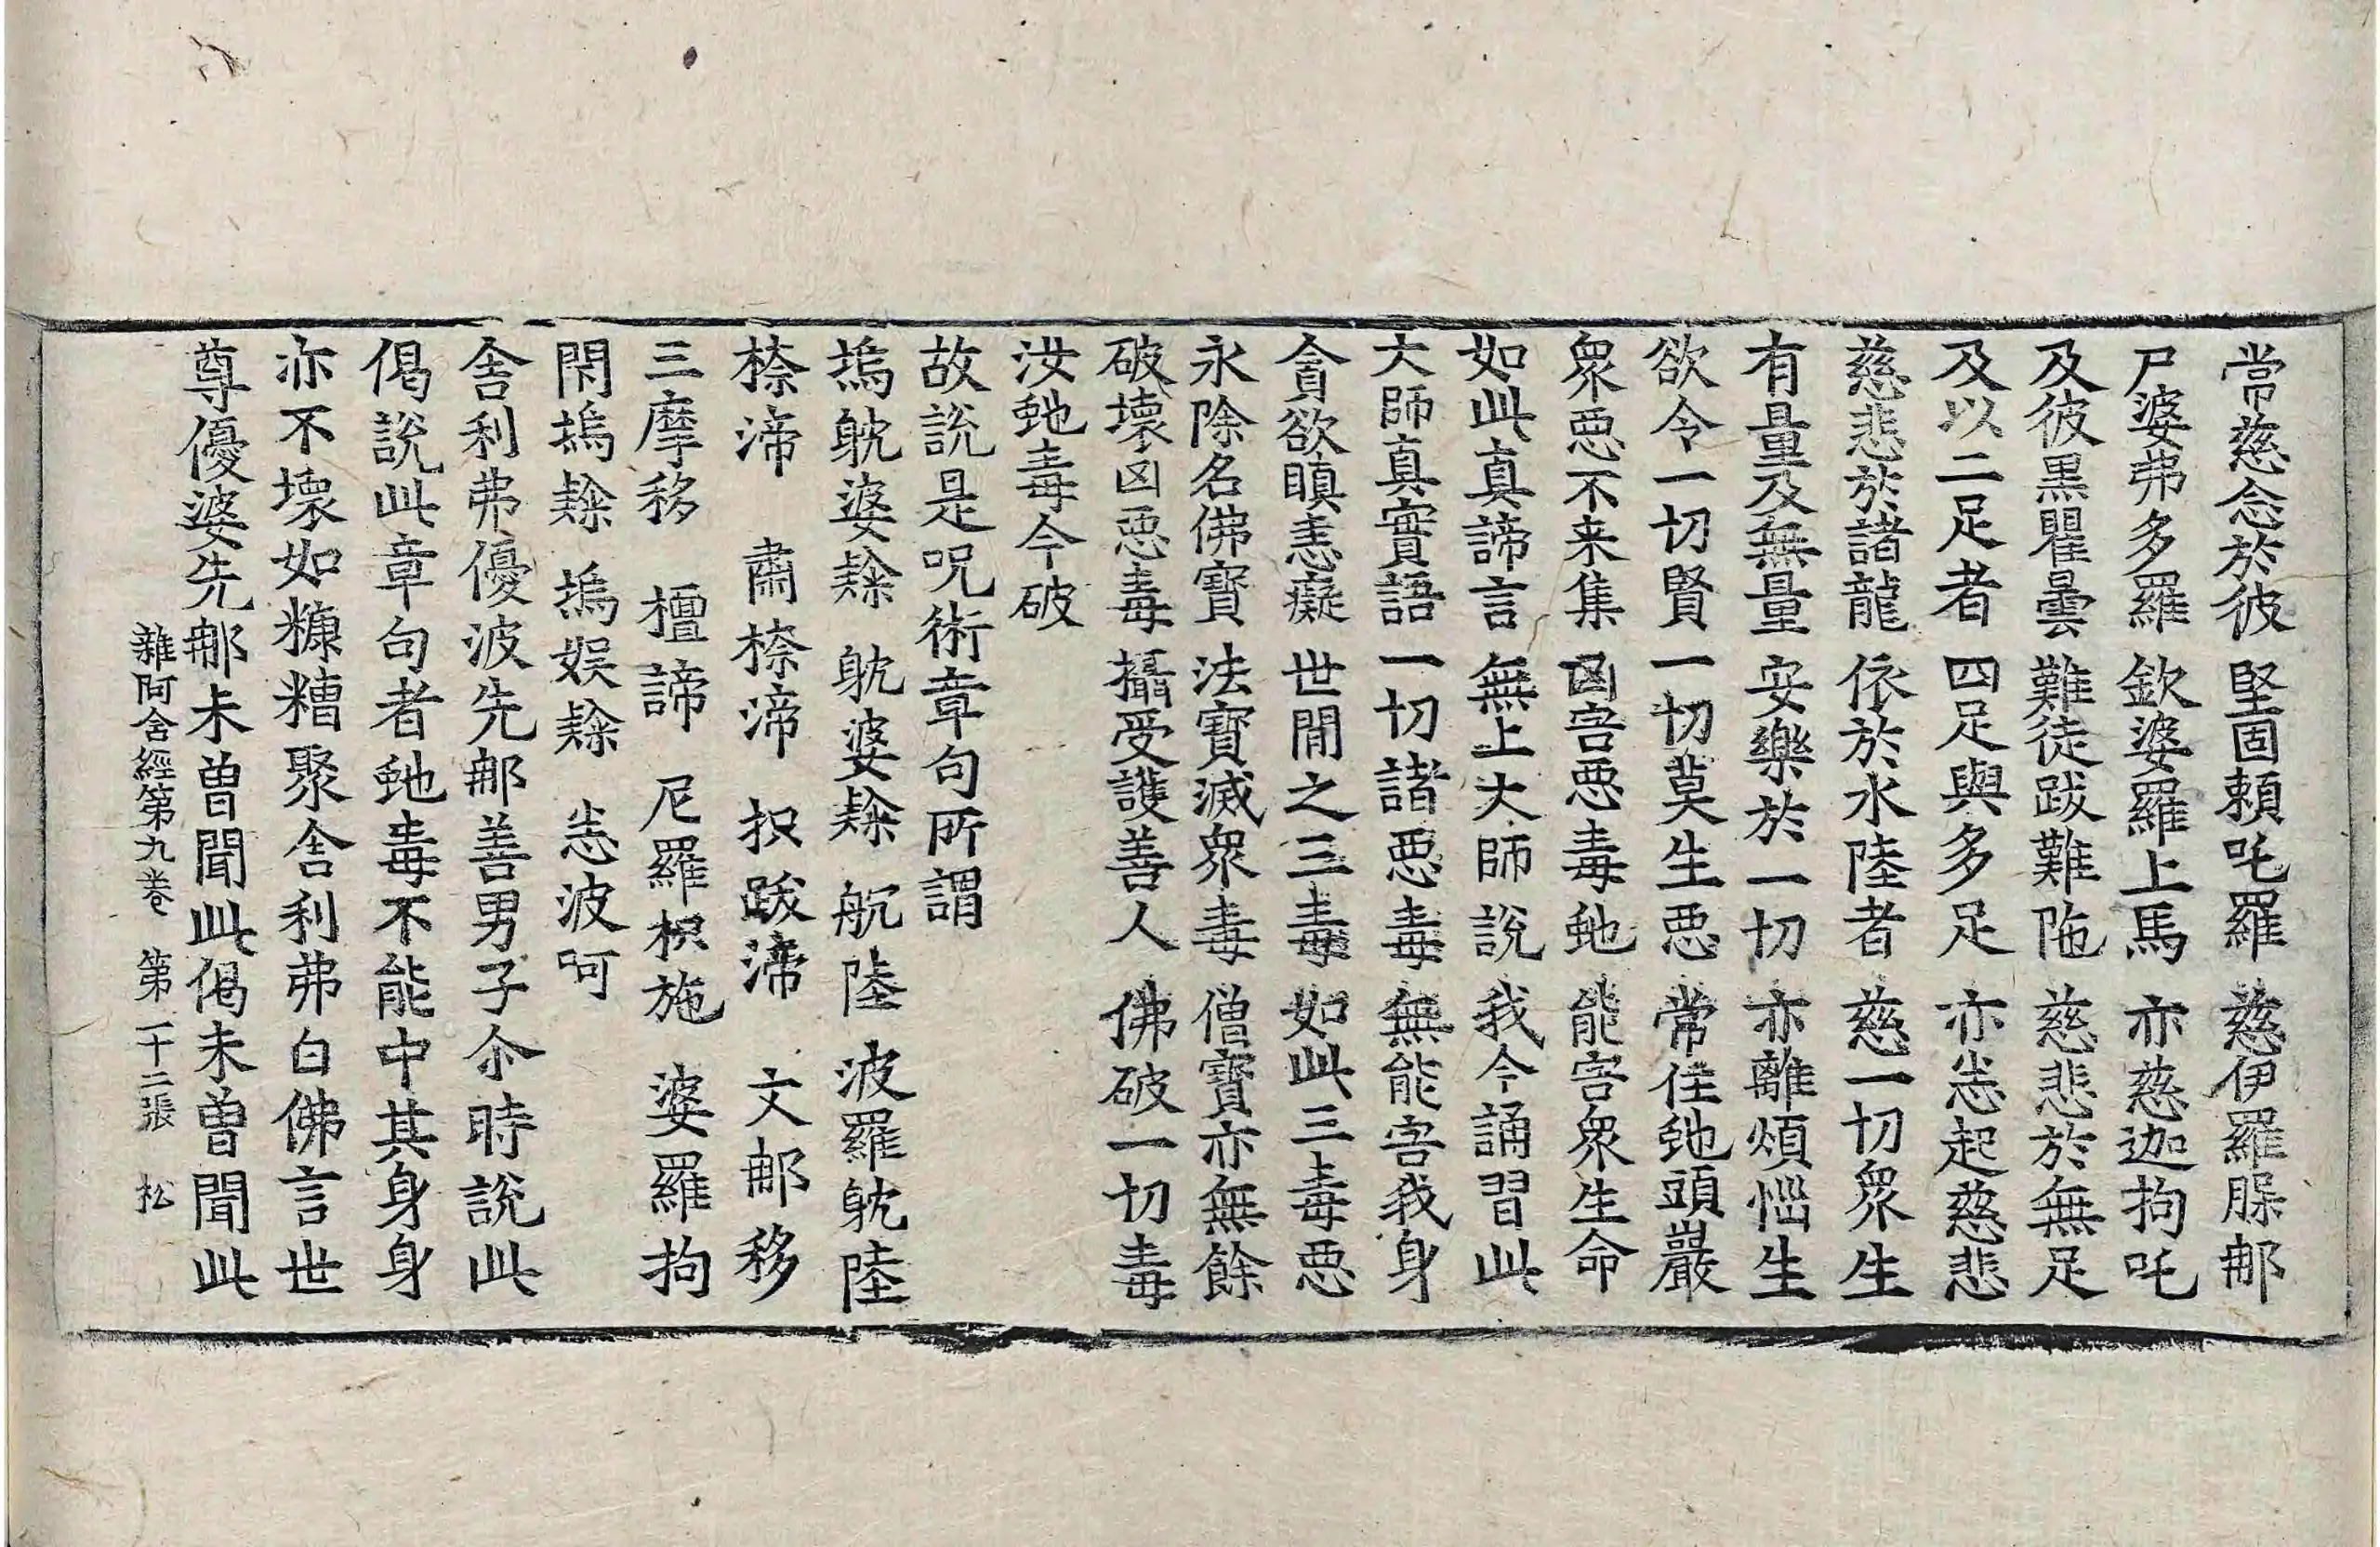 常慈念於彼 堅固賴吒羅 慈伊羅腂那
尸婆弗多羅 欽婆羅上馬 亦慈迦拘吒
及彼黒瞿曇 難徒跋難陁 慈悲於無足
及以二足者 四足與多足 亦悉起慈悲
慈悲於諸龍 依於水陸者 慈一切衆生
有量及無量 安樂於一切 亦離煩惱生
欲令一切賢 一切莫生惡 常住虵頭巖
衆惡不来集 凶害惡毒虵 能害衆生命
如此真諦言 無上大師說 我今誦習此
大師真實語 一切諸惡毒 無能害我身
貪欲瞋恚癡 世閒之三毒 如此三毒惡
永除名佛寶 法寶滅衆毒 僧寶亦無餘
破壞凶惡毒 攝受護善人 佛破一切毒
汝虵毒今破
故說是呪術章句所謂
塢躭婆隸 躭婆隸 航陸 波羅躭陸
㮈渧 肅㮈渧 抧跋渧 文那移
三摩移 檀諦 尼羅枳施 婆羅拘
閇塢隸 塢娱隸 悉波呵
舎利弗優波先那善男子尒時說此
偈說此章句者虵毒不能中其身身
亦不壞如糠糟聚舎利弗白佛言世
尊優婆先那未曽聞此偈未曽聞此
雜阿含經第九卷 第二十二張 松